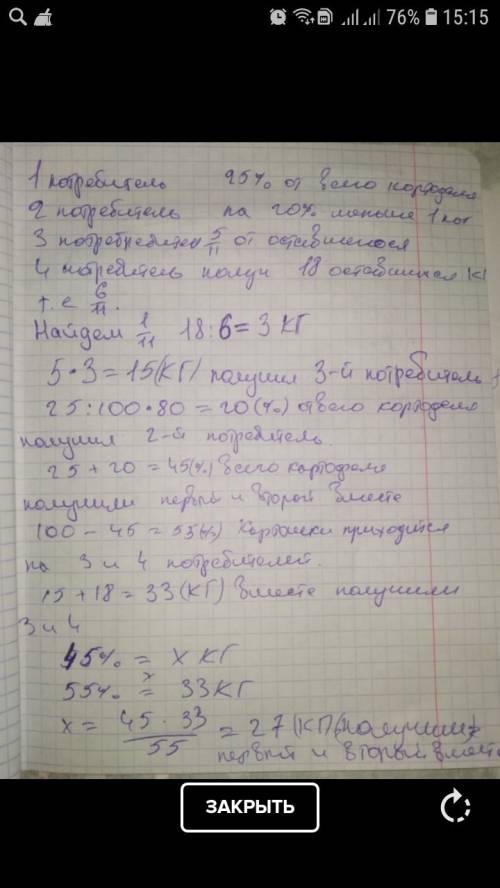 76% 15:15
1 потребитель 25% от всего картофеля
2 потребитель на 20% меньше 1 пот
3 потребитель 5/11 от оставшегося
4 потребитель получ 18 оставшихся кг
т.е 6/11.
Найдем 1/11 18:6=3 КГ
5·3=15(КГ) получил 3-й потребитель
25:100·80=20(%) от всего картофеля
получил 2-й потребитель.
25+20=45(%) всего картофеля
получили первый и второй вместе
100-45=55(%) Картошки приходится
на 3 и 4 потребителей.
15+18=33(КГ) вместе получили
3 и 4
45% = х КГ
55% = 33КГ
х = 45·33/55 = 27(КГ) получили
первый и второй вместе
ЗАКРЫТЬ